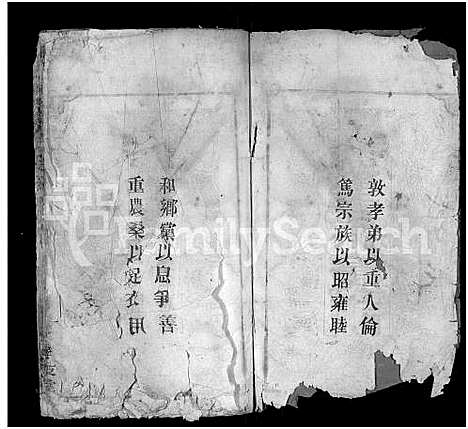 敦孝弟以重人倫
篤宗族以昭雍睦
和鄉黨以息爭善
重農桑以足衣用
FamilySearch